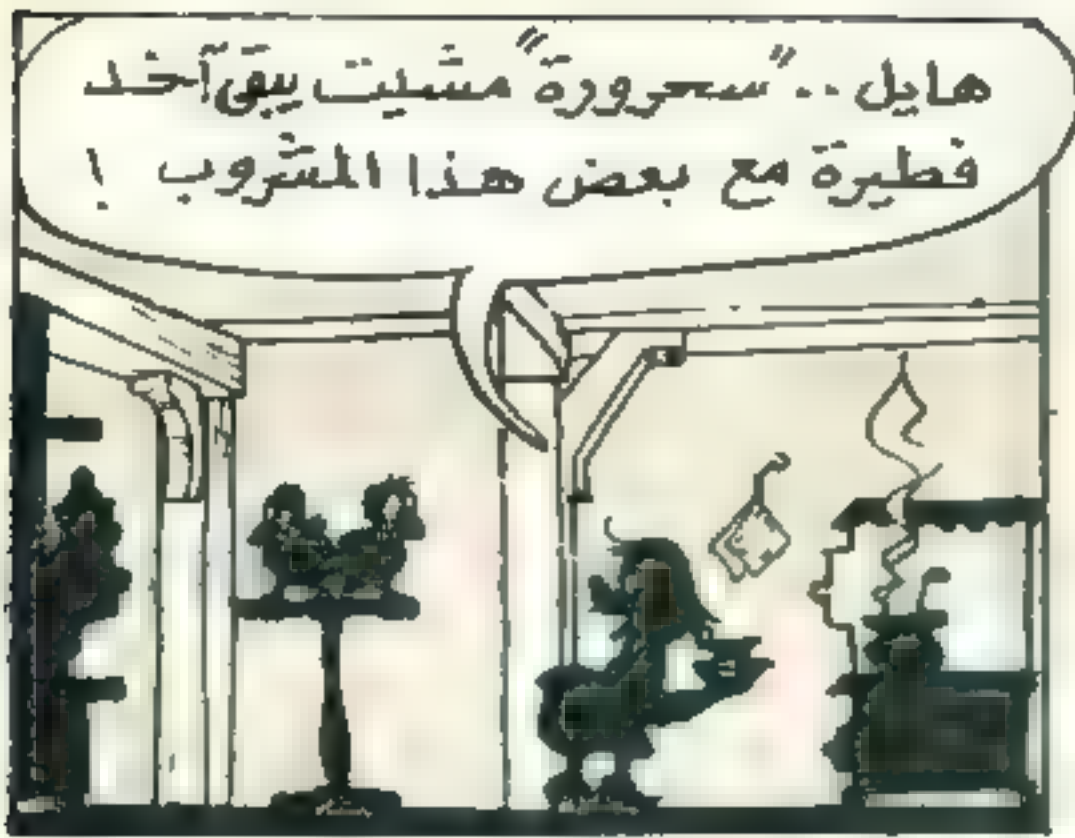 هايل .. "سحرورة" مشيت يبقى آخد
فطيرة مع بعض هذا المشروب !